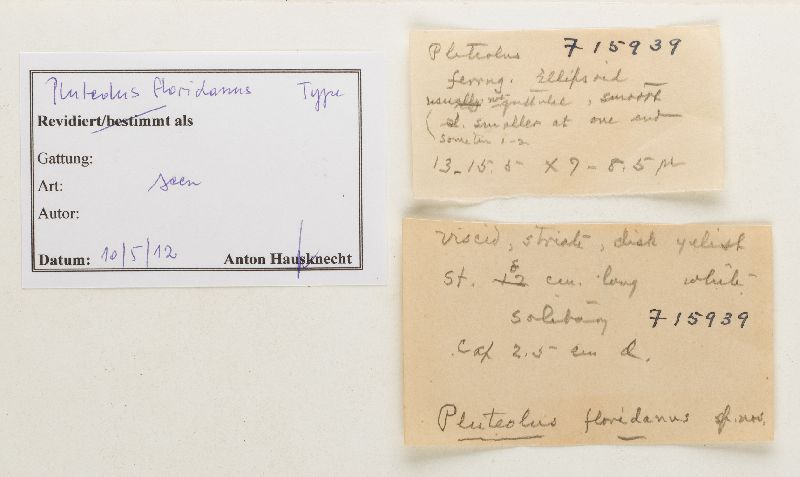 Pluteolus floridanus Type
Revidiert/bestimmt als
Gattung:
Art: seen
Autor:
Datum: 10/5/12 Anton Hausknecht
Pluteolus 715939
ferrug. Ellipsoid
usually not guttulee, smooth
sl. smaller at one end
13-15.5 x 7-8.5 µ
viscid, striate, disk yelish
St. 8 cm. long white
solitary 715939
Cap 2.5 cm d.
Pluteolus floridanus sp. nov.